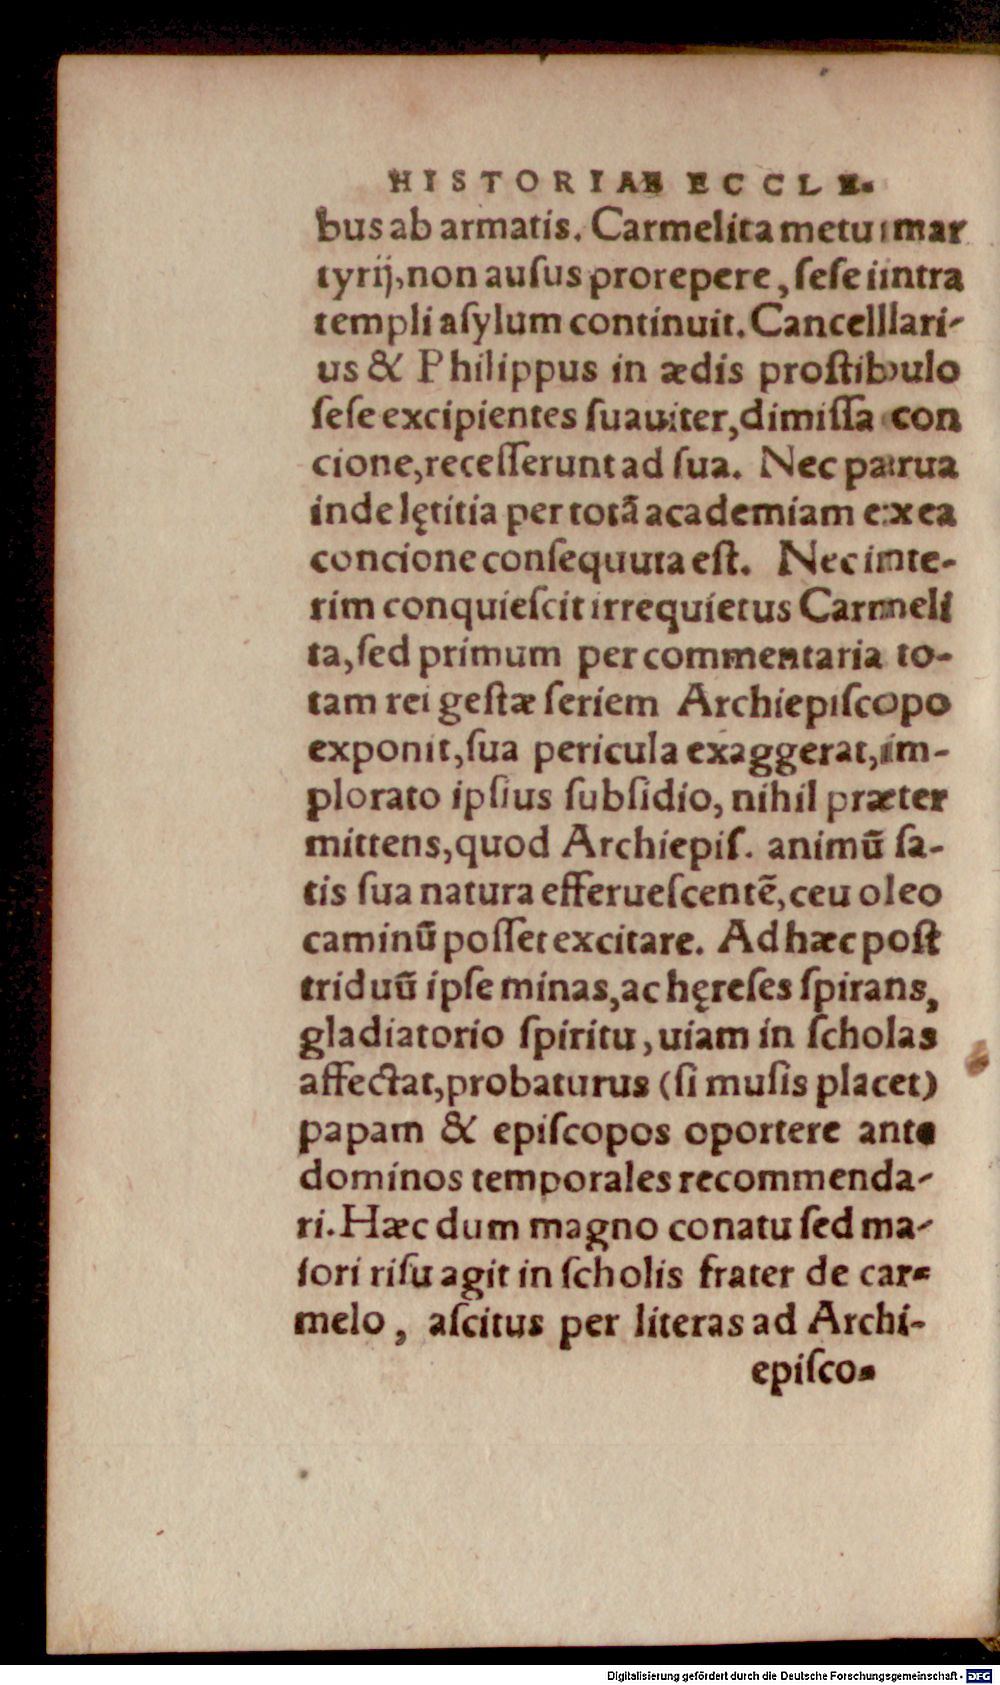 HISTORIAE ECCLE.
bus ab armatis. Carmelita metu mar
tyrij, non auſus prorepere, ſeſe intra
templi aſylum continuit. Cancellari-
us & Philippus in ædis proſtibulo
ſeſe excipientes ſuauiter, dimiſſa con
cione, receſſerunt ad ſua. Nec parua
inde lętitia per totã academiam ex ea
concione conſequuta eſt. Nec inte-
rim conquieſcit irrequietus Carmeli
ta, ſed primum per commentaria to-
tam rei geſtæ ſeriem Archiepiſcopo
exponit, ſua pericula exaggerat, im-
plorato ipſius ſubſidio, nihil præter
mittens, quod Archiepiſ. animũ ſa-
tis ſua natura efferueſcentẽ, ceu oleo
caminũ poſſet excitare. Ad hæc poſt
triduũ ipſe minas, ac hęreſes ſpirans,
gladiatorio ſpiritu, uiam in ſcholas
affectat, probaturus (ſi muſis placet)
papam & epiſcopos oportere ante
dominos temporales recommenda-
ri. Hæc dum magno conatu ſed ma-
iori riſu agit in ſcholis frater de car-
melo, aſcitus per literas ad Archi-
epiſco-
Digitalisierung gefördert durch die Deutsche Forschungsgemeinschaft - DFG